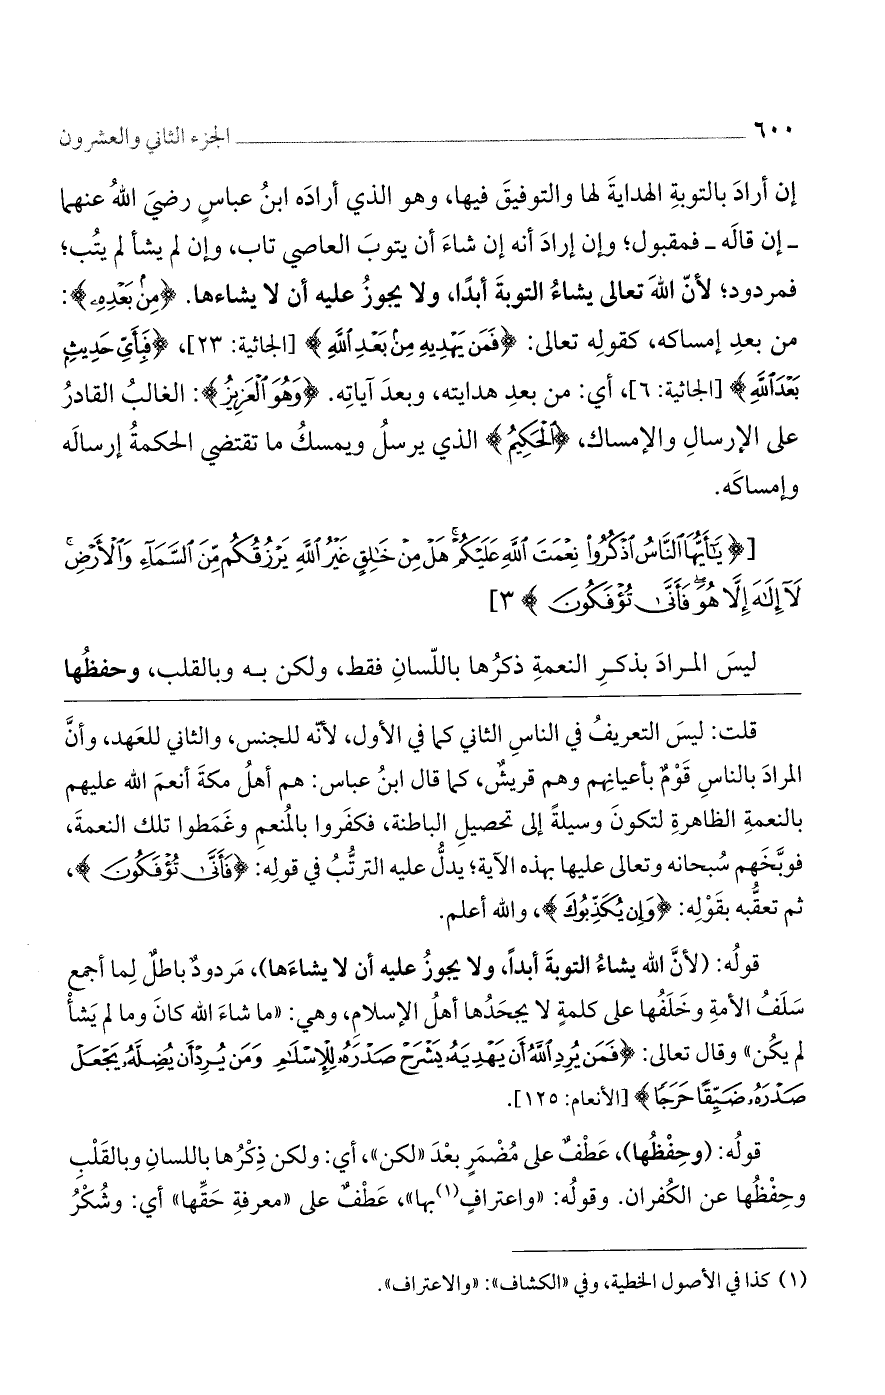 ٦٠٠ ــــــــــــــــــــــــــــــــــــــ الجزء الثاني والعشرون
إن أرادَ بالتوبةِ الهدايةَ لها والتوفيقَ فيها، وهو الذي أرادَه ابنُ عباسٍ رضيَ اللهُ عنهما
ـ إن قالَه ـ فمقبول؛ وإن إرادَ أنه إن شاءَ أن يتوبَ العاصي تاب، وإن لم يشأ لم يتُب؛
فمردود؛ لأنّ اللهَ تعالى يشاءُ التوبةَ أبدًا، ولا يجوزُ عليه أن لا يشاءها. ﴿مِنۢ بَعْدِهِۦ﴾:
من بعدِ إمساكه، كقولِه تعالى: ﴿فَمَن يَهْدِيهِ مِنۢ بَعْدِ ٱللَّهِ﴾ [الجاثية: ٢٣]، ﴿فَبِأَيِّ حَدِيثٍ
بَعْدَ ٱللَّهِ﴾ [الجاثية: ٦]، أي: من بعدِ هدايته، وبعدَ آياتِه. ﴿وَهُوَ ٱلْعَزِيزُ﴾: الغالبُ القادرُ
على الإرسالِ والإمساك، ﴿ٱلْحَكِيمُ﴾ الذي يرسلُ ويمسكُ ما تقتضي الحكمةُ إرسالَه
وإمساكَه.
[﴿يَٰٓأَيُّهَا ٱلنَّاسُ ٱذْكُرُوا۟ نِعْمَتَ ٱللَّهِ عَلَيْكُمْ ۚ هَلْ مِنْ خَٰلِقٍ غَيْرُ ٱللَّهِ يَرْزُقُكُم مِّنَ ٱلسَّمَآءِ وَٱلْأَرْضِ ۚ
لَآ إِلَٰهَ إِلَّا هُوَ ۖ فَأَنَّىٰ تُؤْفَكُونَ﴾ ٣]
ليسَ المرادَ بذكرِ النعمةِ ذكرُها باللّسانِ فقط، ولكن به وبالقلب، وحفظُها
قلت: ليسَ التعريفُ في الناسِ الثاني كما في الأول، لأنّه للجنس، والثاني للعَهد، وأنَّ
المرادَ بالناسِ قَوْمٌ بأعيانِهم وهم قريشٌ، كما قال ابنُ عباس: هم أهلُ مكةَ أنعمَ الله عليهم
بالنعمةِ الظاهرةِ لتكونَ وسيلةً إلى تحصيلِ الباطنة، فكفَروا بالمُنعمِ وغَمَطوا تلك النعمةَ،
فوبَّخَهم سُبحانه وتعالى عليها بهذه الآية؛ يدلُّ عليه الترتُّبُ في قولِه: ﴿فَأَنَّىٰ تُؤْفَكُونَ﴾،
ثم تعقُّبه بقَوْلِه: ﴿وَإِن يُكَذِّبُوكَ﴾، والله أعلم.
قولُه: (لأنَّ الله يشاءُ التوبةَ أبداً، ولا يجوزُ عليه أن لا يشاءَها)، مَردودٌ باطلٌ لِما أجمع
سَلَفُ الأمةِ وخَلَفُها على كلمةٍ لا يجحَدُها أهلُ الإسلامِ، وهي: «ما شاءَ الله كانَ وما لم يَشأْ
لم يكُن» وقال تعالى: ﴿فَمَن يُرِدِ ٱللَّهُ أَن يَهْدِيَهُۥ يَشْرَحْ صَدْرَهُۥ لِلْإِسْلَٰمِ وَمَن يُرِدْ أَن يُضِلَّهُۥ يَجْعَلْ
صَدْرَهُۥ ضَيِّقًا حَرَجًا﴾ [الأنعام: ١٢٥].
قولُه: (وحِفْظُها)، عَطْفٌ على مُضْمَرٍ بعْدَ «لكن»، أي: ولكن ذِكْرُها باللسانِ وبالقَلْبِ
وحِفْظُها عن الكُفران. وقولُه: «واعترافٍ(١)بها»، عَطْفٌ على «معرفةِ حَقِّها» أي: وشُكْرُ
(١) كذا في الأصول الخطية، وفي «الكشاف»: «والاعتراف».